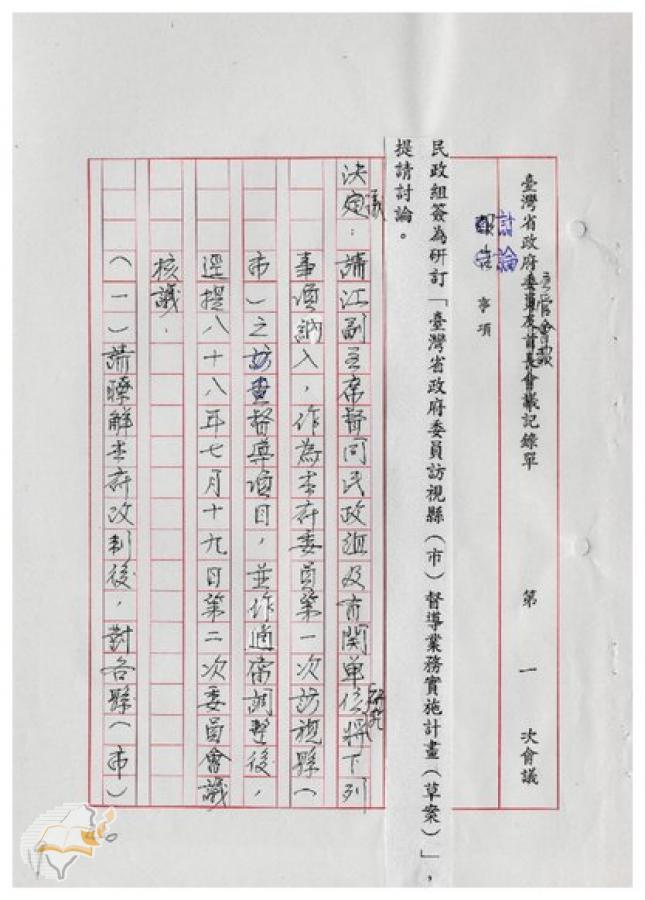 臺灣省政府委員及首長會議記錄單 第一次會議
主管會報
討論
報告事項
民政組簽為研訂「臺灣省政府委員訪視縣(市)督導業務實施計畫(草案)」,
提請討論。
決定:請江副主席督同民政組及有關單位將下列
議
研究
事項納入,作為本府委員第一次訪視縣(
市)之訪查督導項目,並作適當調整後,
逕提八十八年七月十九日第二次委員會議
核議.
(一)請瞭解本府改制後,對各縣(市)